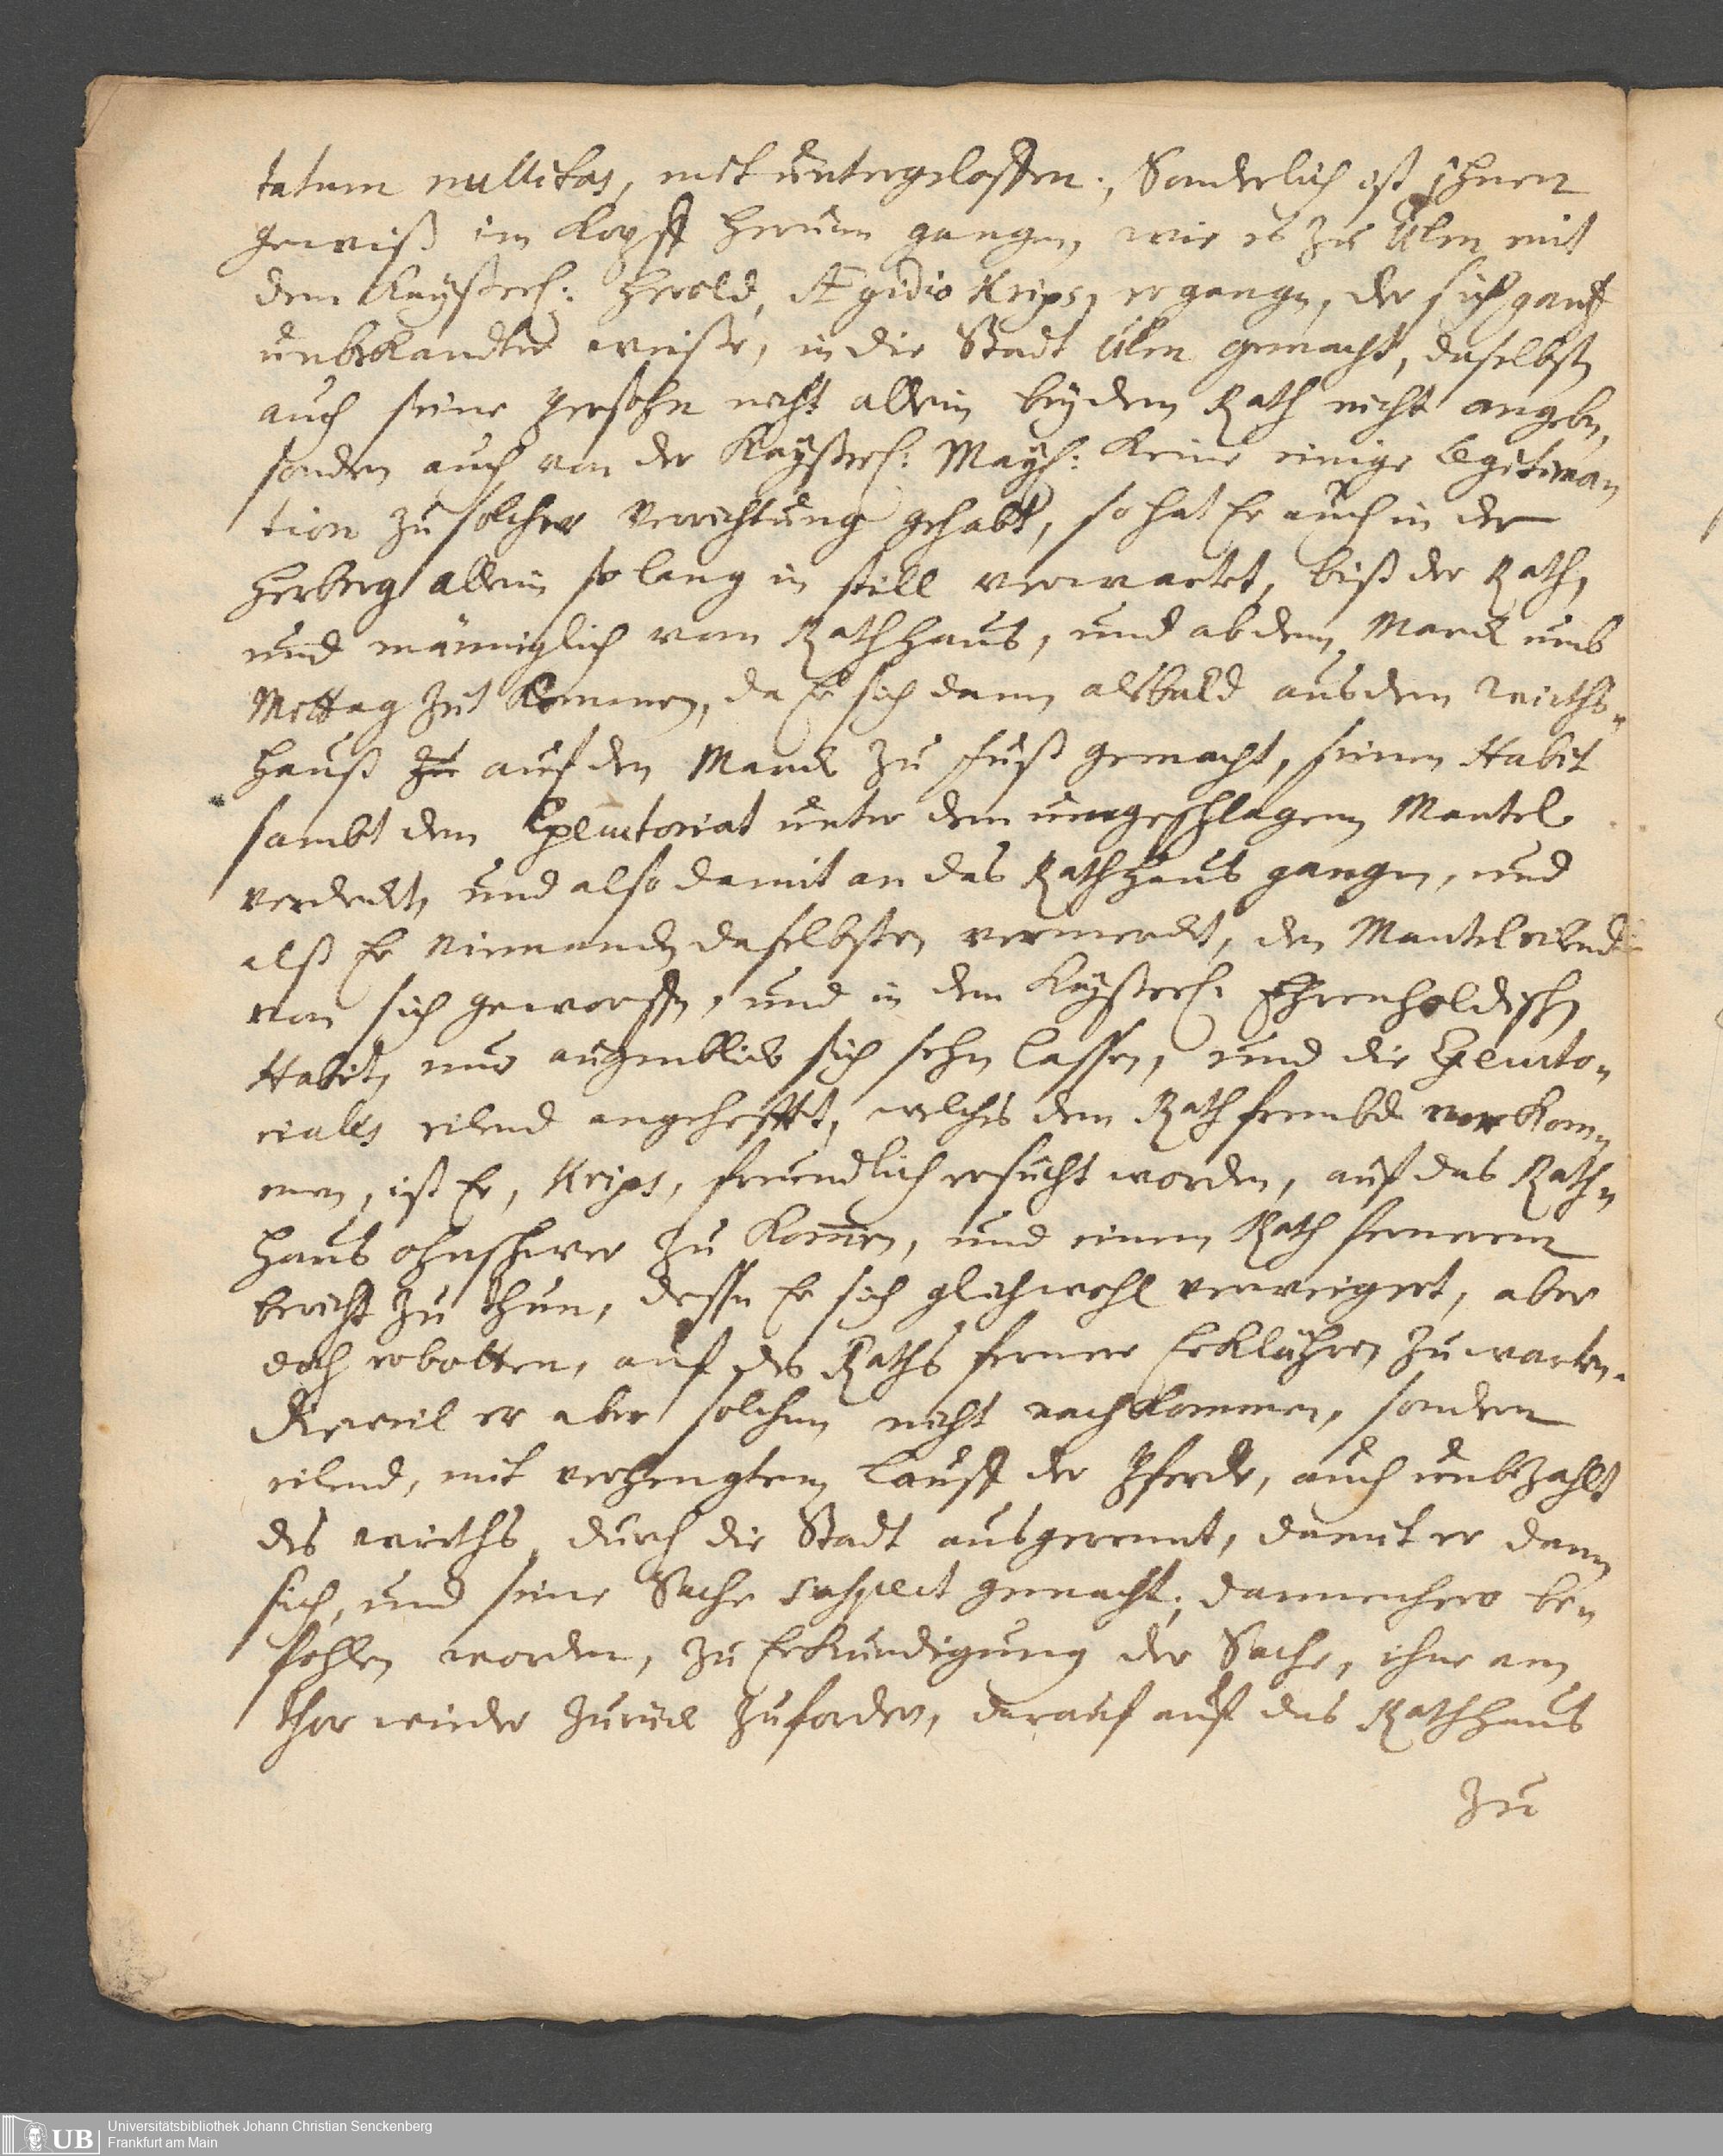 tatum nullitas, mit untergeloffen; Sonderlich ist Ihnen
gewiß im Kopff herumm gangen, wie es zu Ulm mit
dem Kayßerl: Herold, Ægidio Krips, ergangen, der sich gantz
unbekandter weiße, in die Stadt Ulm gemacht, daselbst
auch seine persohn nicht allein bey dem Rath nicht angeben,
sondern auch von der Kayßerl: Mayst: keine einige legitima-
tion zu solcher verrichtung gehabt, so hat Er auch in der
Herberg allein so lang in still verwartet, biß der Rath,
und männiglich vom Rathhaus, und ab dem Marck umb
Mittag Zeit kommen, da Er sich dann alsbald aus dem wirths-
hauß zu auf den Marck zu fuß gemacht, seinen Habit
sambt dem Executoriat unter dem umgeschlagenen Mantel
verdeckt, und also damit an das Rathhaus gangen, und
alß Er niemanden daselbsten vermerckt, den Mantel eilend
von sich geworffen, und in dem Kayßerl: Ehrenholdischen
Habit, nur augenblick sich sehen lassen, und die Executo-
riales eilend angehefftet, welches dem Rath frembd vorkom-
men, ist Er, Krips, freundlich ersucht worden, auf das Rath-
haus ohnschwer zu kommen, und einem Rath fernern
bericht zu thun, dessen Er sich gleichwohl verweigert, aber
doch erbotten, auf des Raths ferner Erklähren zu warten.
Dieweil er aber solchem nicht nachkommen, sondern
eilend, mit verhengtem lauff der Pferde, auch unbezahlt
des wirths, durch die Stadt ausgerennt, damit er dann
sich, und seine Sache suspect gemacht; dannenhero be-
fohlen worden, zu Erkundigung der Sache, ihne am
Thor wieder zurück zufordern, darauf auf das Rathhaus
zu
Universitätsbibliothek Johann Christian Senckenberg
Frankfurt am Main
UB